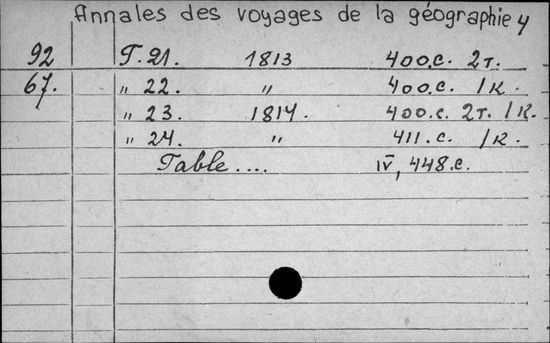 Annales des voyages de la géographie 4
92 T. 21. 1813 400.с. 2т.
67. " 22. " 400.с. /к.
" 23. 1814. 400.с. 2т. /к.
" 24. " 411.с. /к.
Table .... IV, 448.с.